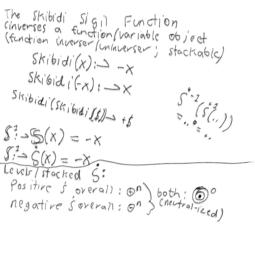 The Skibidi Sigil Function
inverses a function/variable object
(function inverser/uninverser; stackable)
Skibidi(x):→ -x
Skibidi(-x):→x
Skibidi(Skibidi(
(x)=-x
(x)=-x
Levels/stacked
Positive overall: ⊕ⁿ
negative overall: ⊖ⁿ
both:
(neutralized)